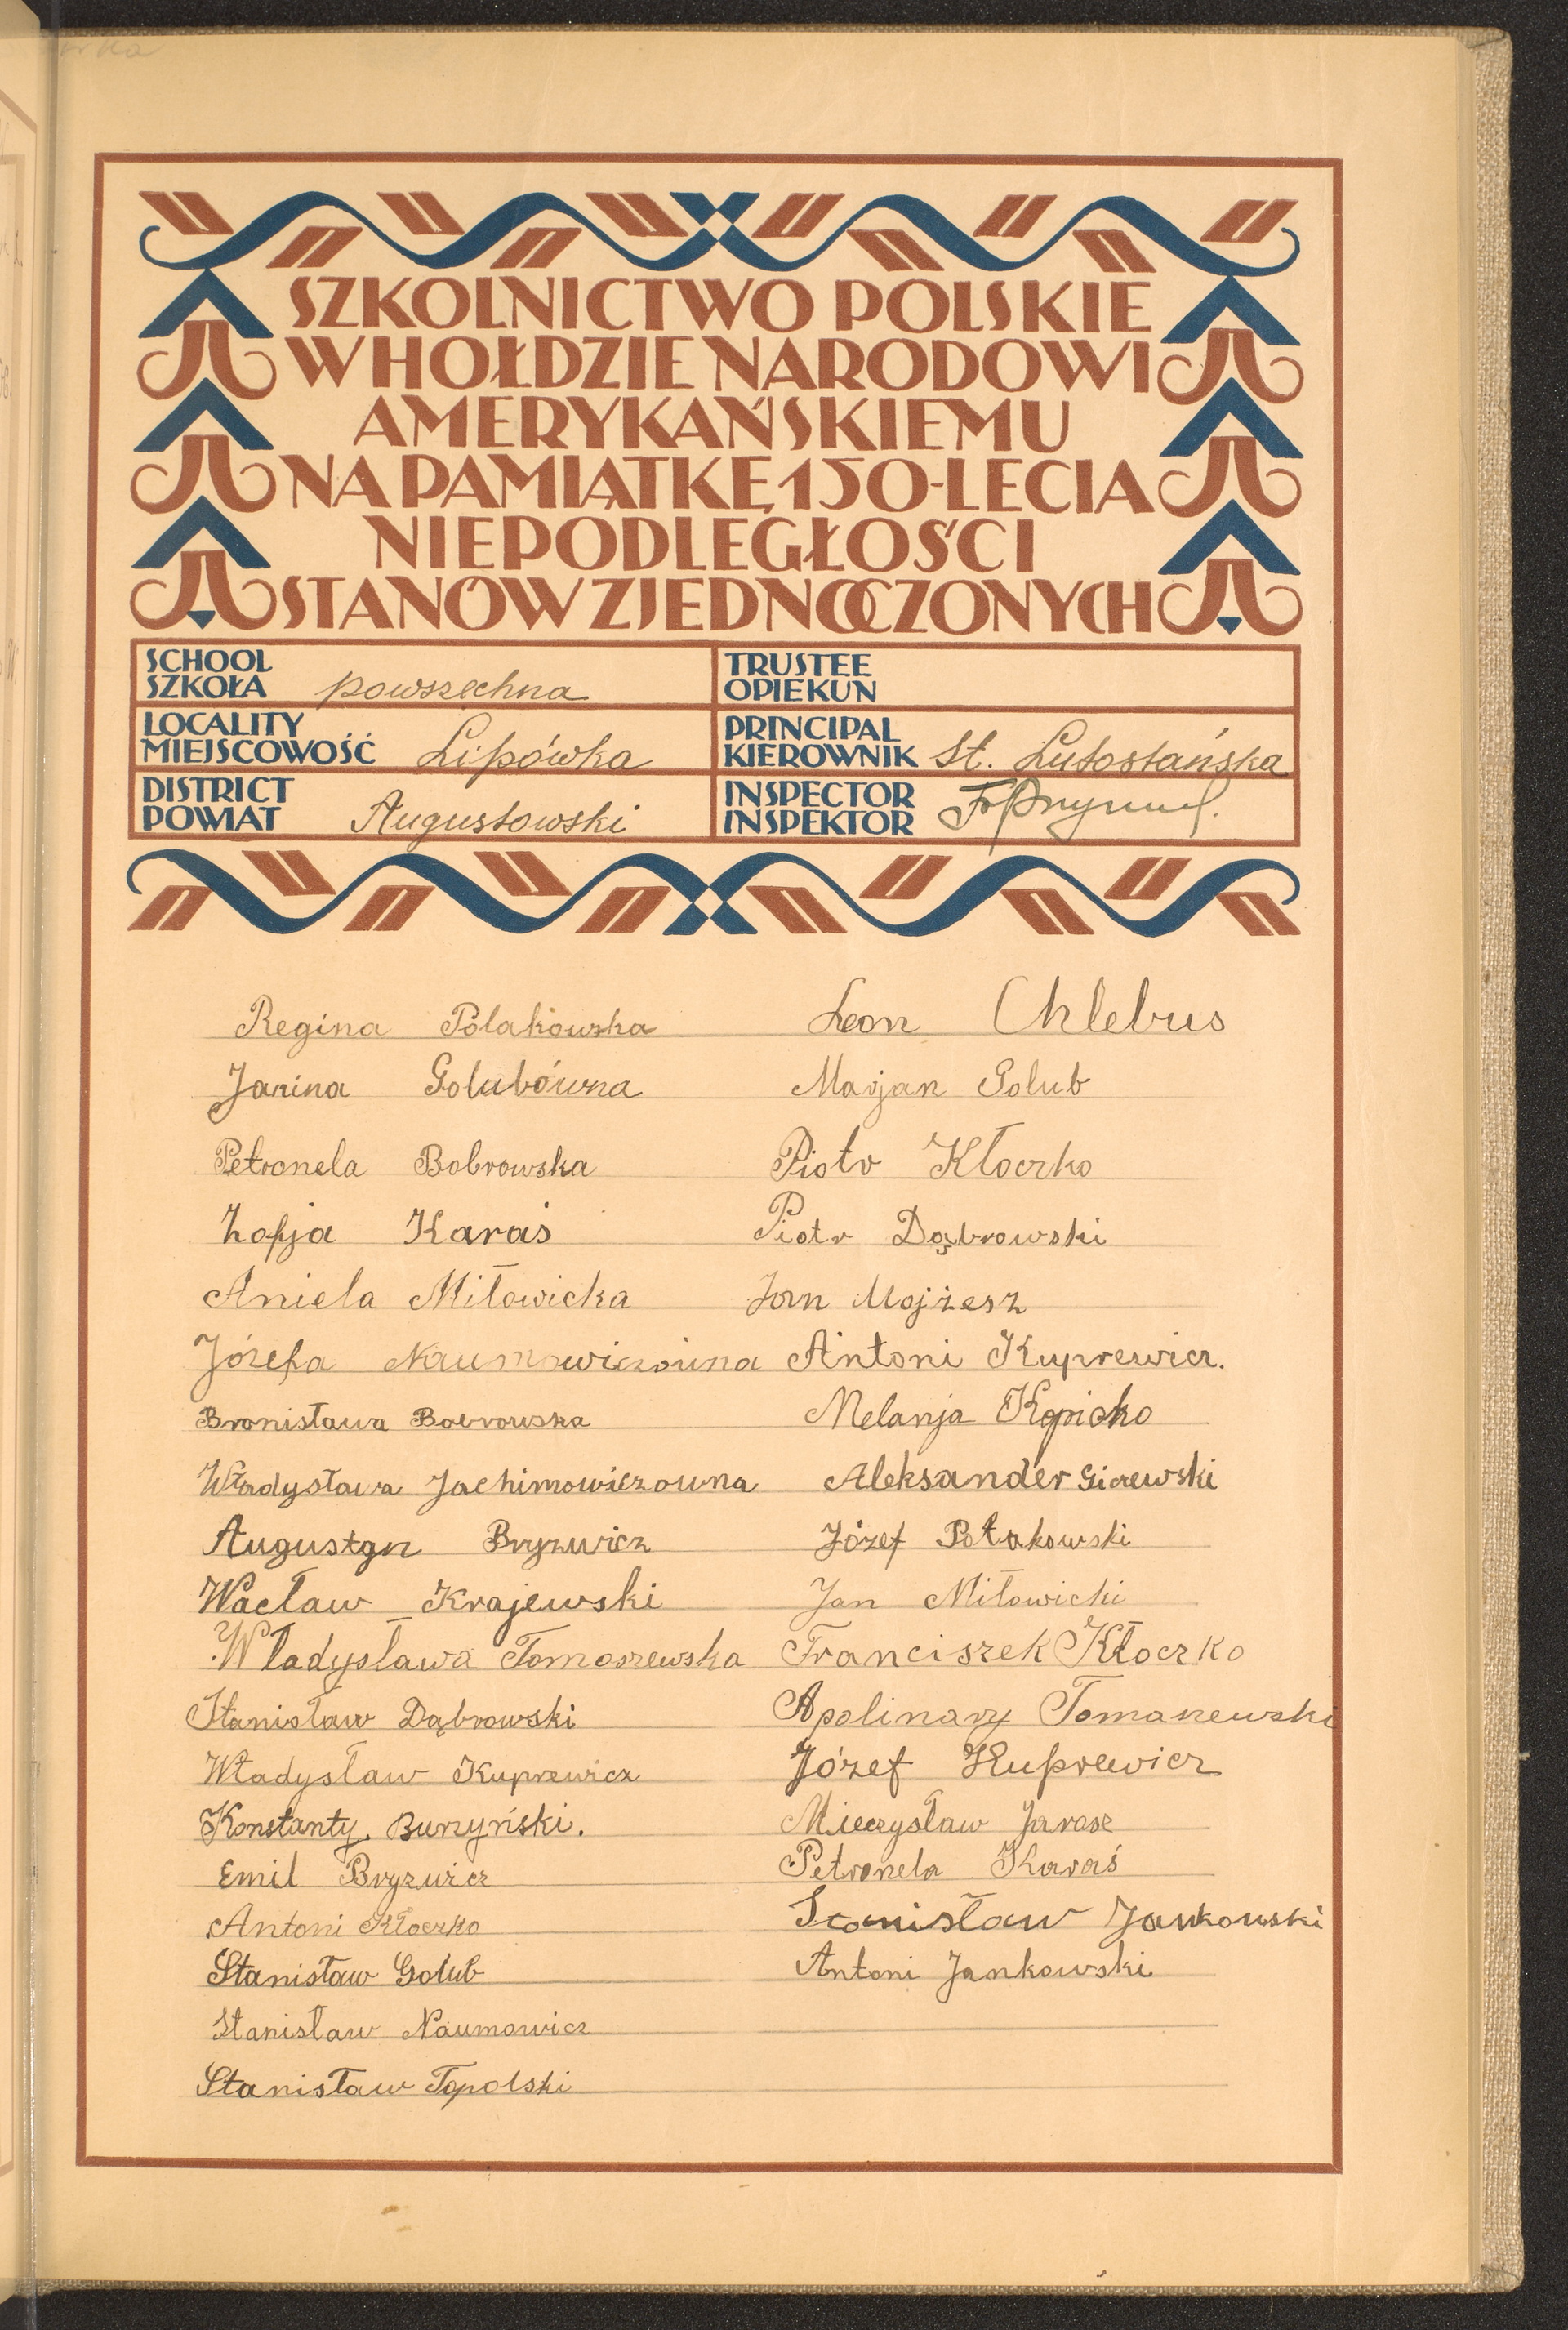 SZKOLNICTWO POLSKIE
W HOŁDZIE NARODOWI
AMERYKAŃSKIEMU
NA PAMIĄTKĘ 150-LECIA
NIEPODLEGŁOŚCI
STANÓW ZJEDNOCZONYCH
SCHOOL
SZKOŁA powszechna
TRUSTEE
OPIEKUN
LOCALITY
MIEJSCOWOŚĆ Lipówka
PRINCIPAL
KIEROWNIK St. Lutostańska
DISTRICT
POWIAT Augustowski
INSPECTOR
INSPEKTOR
Regina Polakowska
Janina Golubówna
Petronela Bobrowska
Zofja Karaś
Aniela Miłowicka
Józefa Naumowiczówna
Bronisława Bobrowska
Władysława Jachimowiczowna
Augustyn Bryzwicz
Wacław Krajewski
Władysława Tomaszewska
Stanisław Dąbrowski
Władysław Kuprewicz
Konstanty Burzyński.
Emil Bryzwicz
Antoni Kłoczko
Stanisław Golub
Stanisław Naumowicz
Stanisław Topolski
Leon Chlebus
Marjan Golub
Piotr Kłoczko
Piotr Dąbrowski
Jan Mojżesz
Antoni Kuprewicz.
Melanja Kopicko
Aleksander Giczewski
Józef Połakowski
Jan Miłowicki
Franciszek Kłoczko
Apolinary Tomaszewski
Józef Kuprewicz
Mieczysław Jarosz
Petronela Karaś
Stanisław Jankowski
Antoni Jankowski